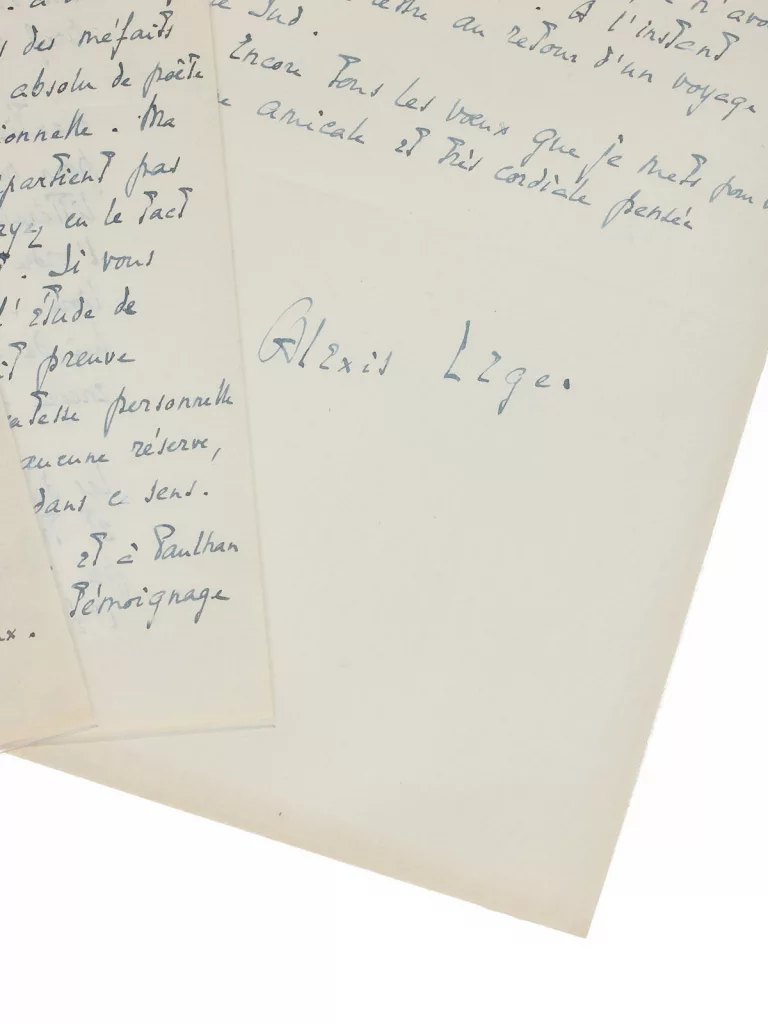 des méfaits
absolu de poëte
ionnelle. Ma
partient pas
ayez en le tact
. Si vous
l'étude de
preuve
personnelle
aucune réserve,
dans ce sens.
et à Paulhan
témoignage
x.
n'avo
. A l'instant
ettre au retour d'un voyage
Sud.
Encore tous les vœux que je mets pour
amicale et très cordiale pensée
Alexis Leger.